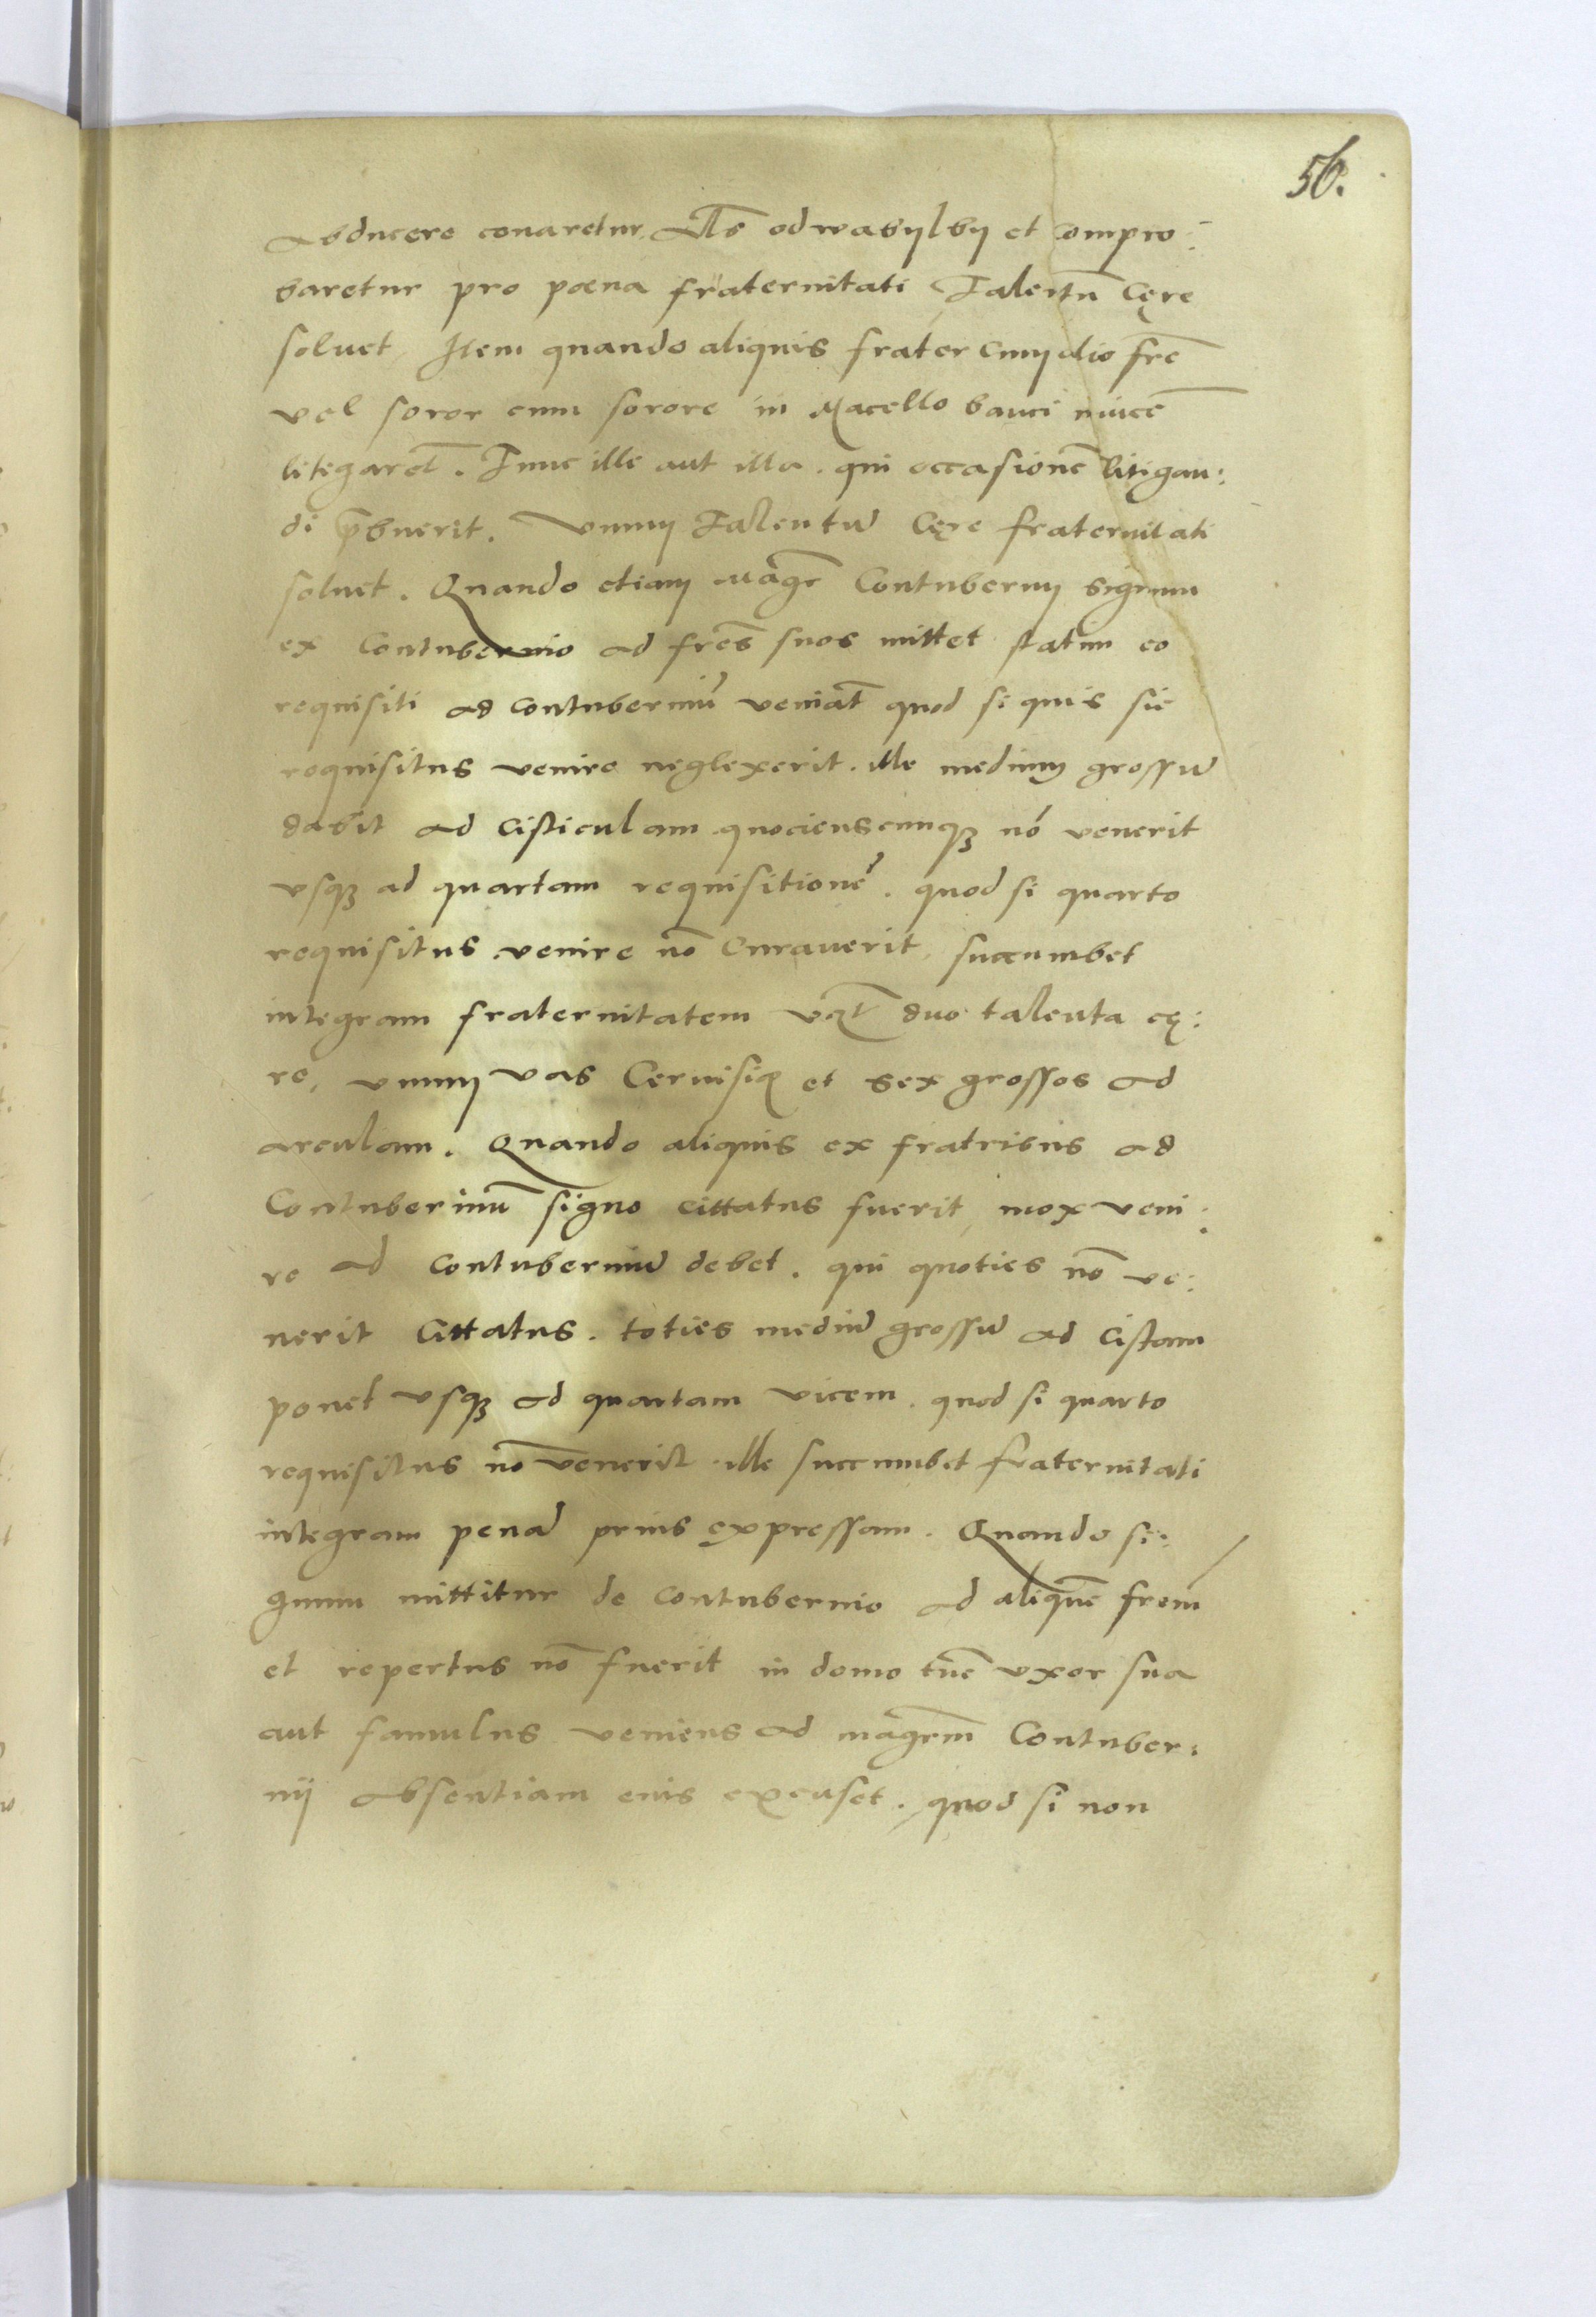 56.
abducere conaretur. Als odwabÿlbÿ et compro:
baretur pro pœna fraternitati Talentũ Cęre
soluet, Item quando aliquis frater cum alio frẽ
vel soror cum sorore in Macello
litegarẽt. Tunc ille aut illa. qui occasionẽ litigan:
di p̄buerit. vnum Talentũ Cęre fraternitati
soluet. Quando etiam mãgr̃ Contubernÿ signum
ex Contubernio ad frẽs suos mittet statim eo
requisiti ad contuberniũ veniãt quod si quis sic
requisitus venire neglexerit. ille medium grossũ
dabit ad cisticulam quocienscunqꝫ nõ venerit
vsqꝫ ad quartam requisitionẽ. quod si quarto
requisitus venire nõ Curauerit, succumbet
integram fraternitatem duo talenta cę:
re, vnum vas Ceruisię et sex grossos ad
arculam. Quando aliquis ex fratribus ad
Contuberniũ signo cittatus fuerit, mox veni:
re ad contuberniũ debet. qui quoties nõ ve:
nerit Cittatus. toties mediũ grossũ ad Cistam
ponet vsqꝫ ad quartam vicem. quod si quarto
requisitus nõ venerit ille succumbet fraternitati
integram penã prius expressam. Quando si:
gnum mittitur de contubernio ad aliquẽ frẽm
et repertus nõ fuerit in domo tũc vxor sua
aut famulus veniens ad mãgrm̃ Contuber:
nij absentiam eius excuset. quod si non